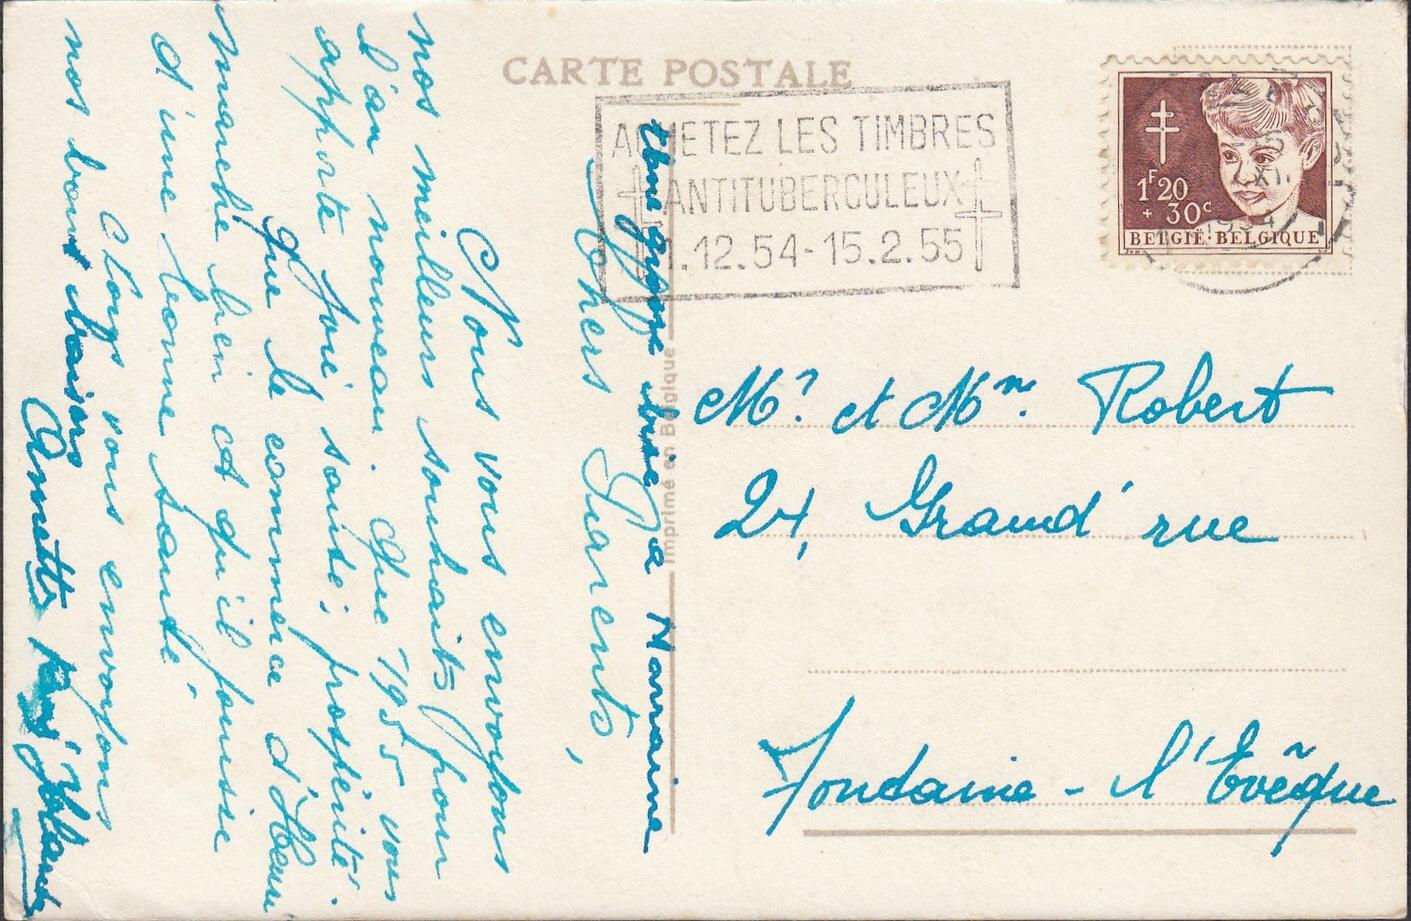 CARTE POSTALE
ACHETEZ LES TIMBRES
ANTITUBERCULEUX
1.12.54-15.2.55
1F20
+ 30c
BELGIË·BELGIQUE
1954
Imprimé en Belgique
Mr et Mme Robert
24, Grand'rue
Fontaine-l'Evêque
Chers Parents,
Nous vous envoyons
nos meilleurs souhaits pour
l'an nouveau. Que 1955 vous
apporte joie, santé, prospérité.
Que le commerce d'Henri
marche bien et qu'il jouisse
d'une bonne santé.
vous envoyons
nos bons baisers
Annette
Une grosse bise à Marraine